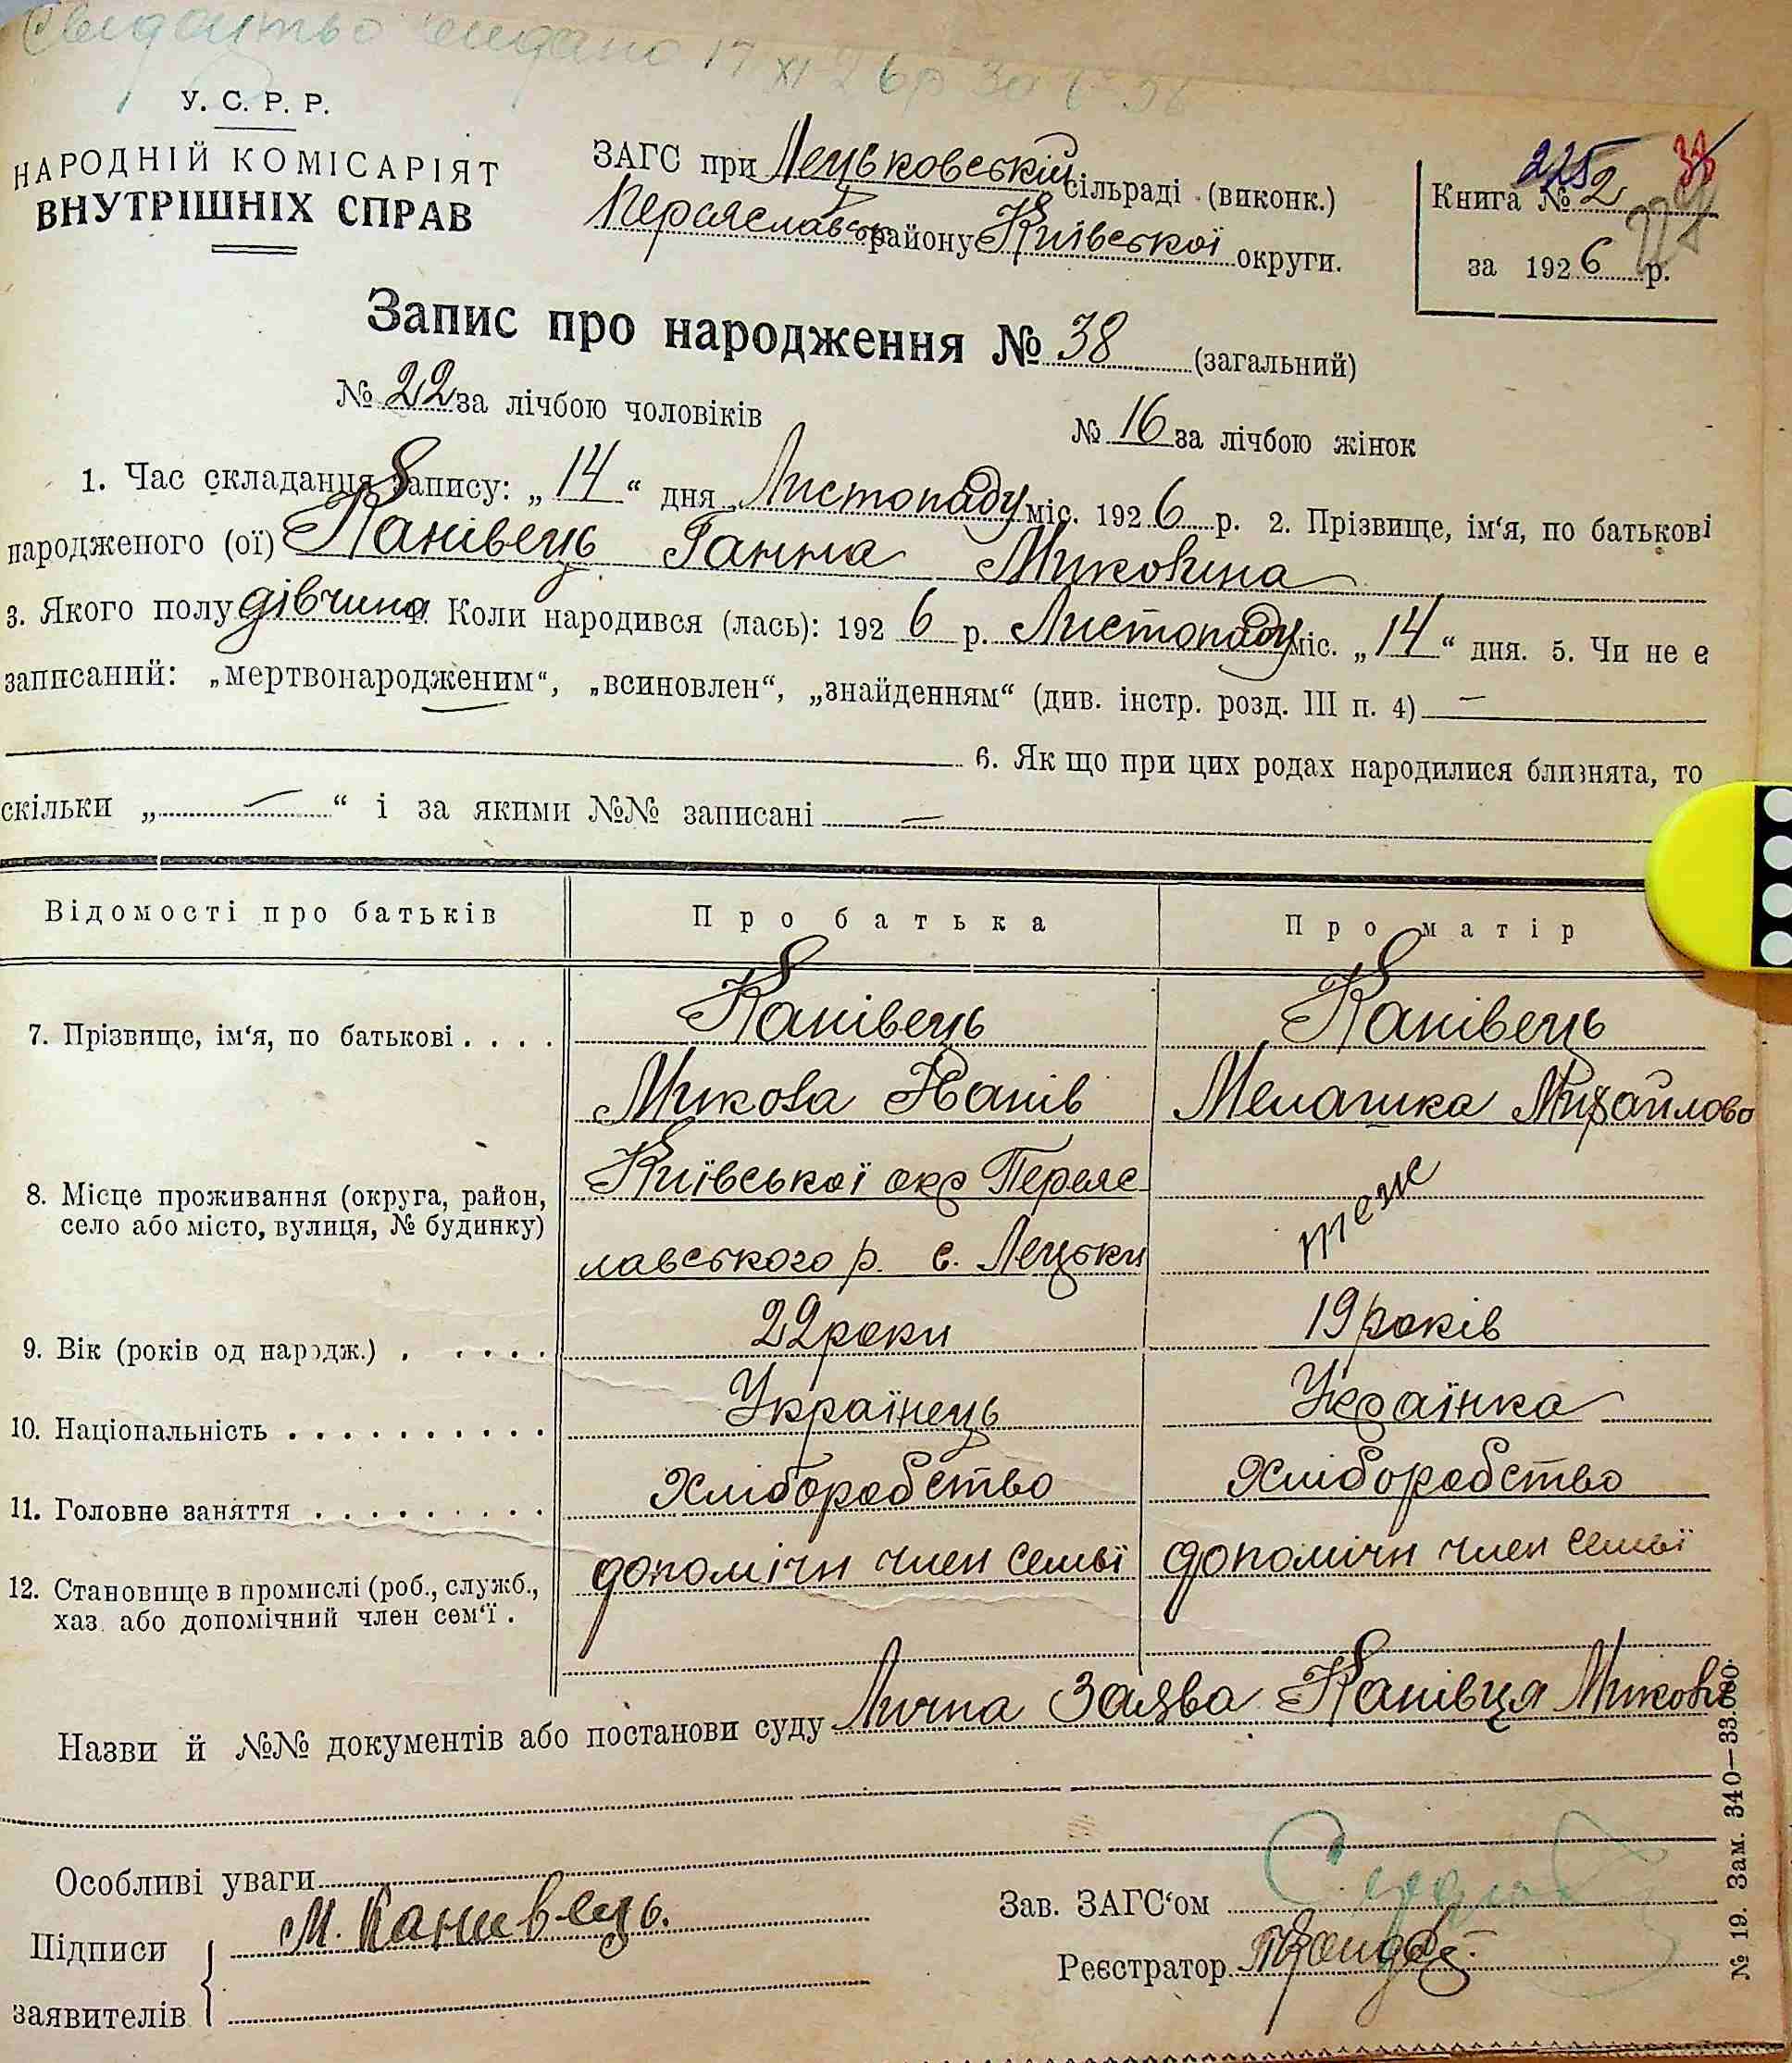 Свидоцтво видано 17 XI 26р за №38
У. С. Р. Р.
НАРОДНІЙ КОМІСАРІЯТ
ВНУТРІШНІХ СПРАВ
ЗАГС при Лецьковській сільраді (виконк.)
Переяславськ району Київської округи.
225
38
Книга № 2
за 1926 р.
Запис про народження № 38 (загальний)
№ 22 за лічбою чоловіків
№ 16 за лічбою жінок
1. Час складання запису: „14“ дня Листопаду міс. 1926 р. 2. Прізвище, ім‘я, по батькові
народженого (ої) Канівець Ганна Миколина
3. Якого полу дівчина 4. Коли народився (лась): 1926 р. Листопаду міс. „14“ дня. 5. Чи не є
записаний: „мертвонародженим“, „всиновлен“, „знайденням“ (див. інстр. розд. III п. 4) —
6. Як що при цих родах народилися близнята, то
скільки „—“ і за якими №№ записані —
Відомості про батьків
Про батька
Про матір
7. Прізвище, ім‘я, по батькові . . . .
Канівець
Микола Іванів
Канівець
Мелашка Михайлова
8. Місце проживання (округа, район,
село або місто, вулиця, № будинку)
Київської окр Переяс
лавського р. с. Лецьки
теж
9. Вік (років од нарэдж.) . . . . .
22 роки
19 років
10. Національність . . . . . . . . . .
Українець
Українка
11. Головне заняття . . . . . . . . .
Хліборобство
Хліборобство
12. Становище в промислі (роб., служб.,
хаз. або допомічний член сем‘ї .
допомічн член семьї
допомічн член семьї
Назви й №№ документів або постанови суду Лична Заява Канівця Миколи
Особливі уваги
Підписи
заявителів
М. Канивець.
Зав. ЗАГС‘ом
Реєстратор
№ 19. Зам. 340—33.000.